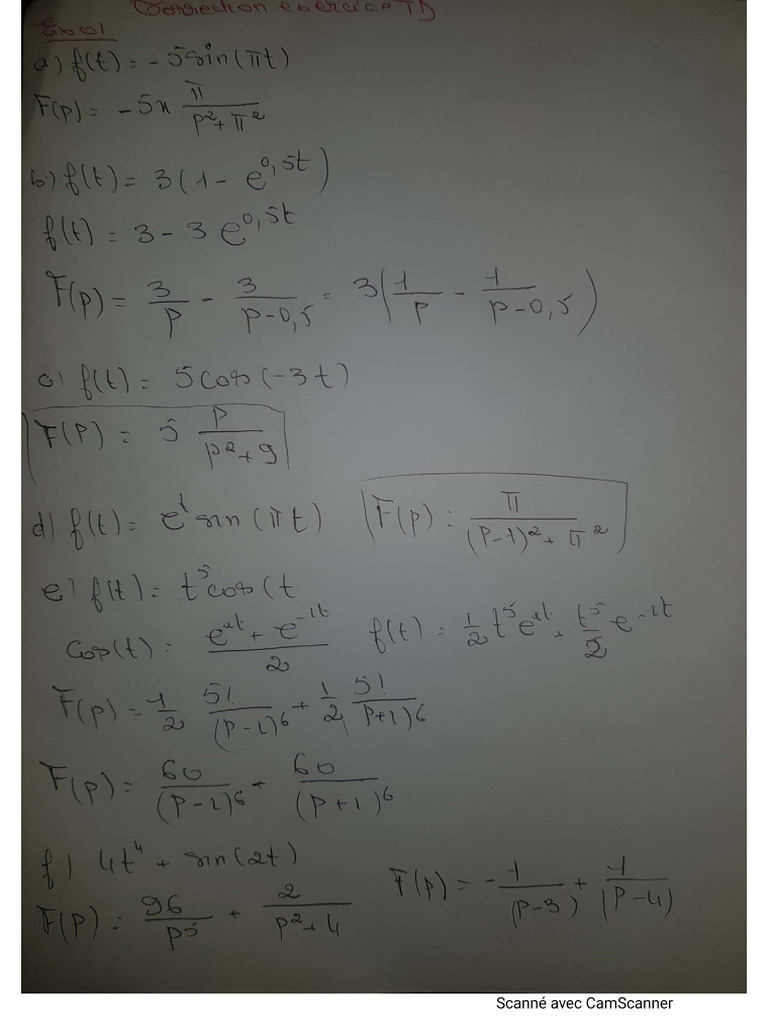 Correction exercice TD
Exo1
a) f(t) = -5sin(πt)
F(p) = -5x π/(p²+π²)
b) f(t) = 3(1 - e^0,5t)
f(t) = 3 - 3 e^0,5t
F(p) = 3/p - 3/(p-0,5) = 3(1/p - 1/(p-0,5))
c) f(t) = 5cos(-3t)
F(P) = 5 P/(p²+9)
d) f(t) = e^t sin(πt) F(p) = π/((P-1)²+π²)
e) f(t) = t^5 cos(t
Cos(t) = (e^it + e^-it)/2 f(t) = 1/2 t^5 e^it + t^5/2 e^-it
F(p) = 1/2 5!/(P-i)^6 + 1/2 5!/(P+i)^6
F(p) = 60/(P-i)^6 + 60/(P+i)^6
f) 4t^4 + sin(2t)
F(p) = 96/p^5 + 2/(p²+4) F(p) = -1/(p-3) + 1/(P-4)
Scanné avec CamScanner